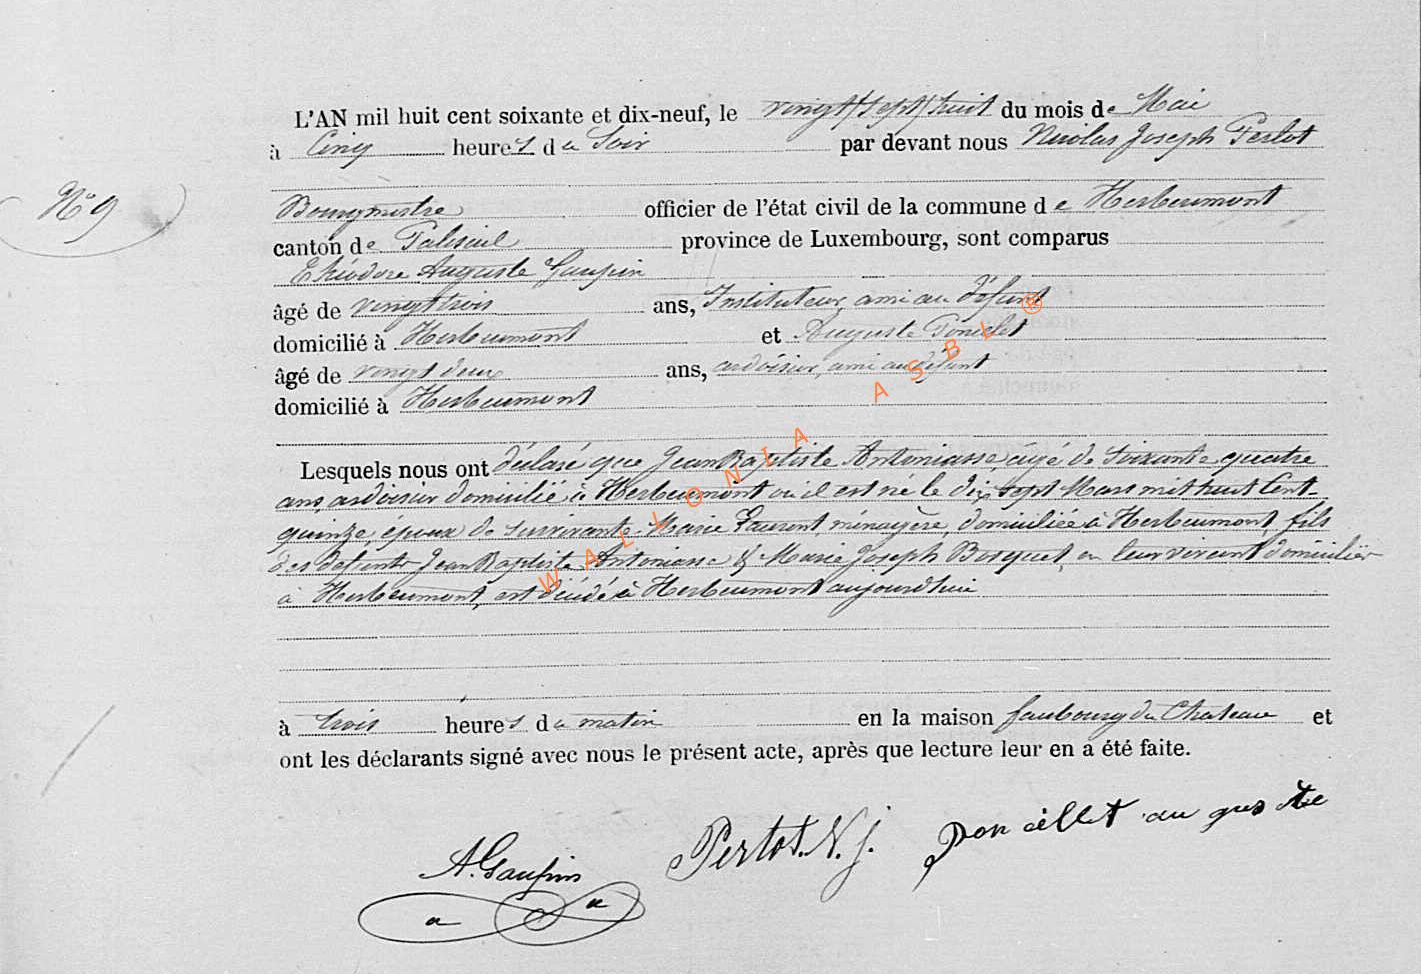 L'AN mil huit cent soixante et dix-neuf, le vingt sept huit du mois de Mai
à Cinq heures du Soir par devant nous Nicolas Joseph Perlot
N° 9
Bourgmestre officier de l'état civil de la commune de Herbeumont
canton de Paliseul province de Luxembourg, sont comparus
Théodore Auguste Gaupin
âgé de vingt trois ans, Instituteur, ami au défunt
domicilié à Herbeumont et Auguste Poncelet
âgé de vingt deux ans, ardoisier, ami au défunt
domicilié à Herbeumont
Lesquels nous ont déclaré que Jean Baptiste Antoniasse, âgé de Soixante quatre
ans ardoisier domicilié à Herbeumont où il est né le dix sept Mars mil huit Cent
quinze époux de survivante Marie Laurent, ménagère, domiciliée à Herbeumont, fils
des défunts Jean Baptiste Antoniasse & Marie Joseph Bosquet, en leur vivant domiciliés
à Herbeumont, est décédé à Herbeumont aujourd'hui
à trois heures du matin en la maison faubourg du Chateau et
ont les déclarants signé avec nous le présent acte, après que lecture leur en a été faite.
A. Gaupin Perlot. N. J. poncellet auguste
WALLONIA ASBL ®